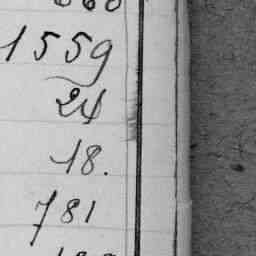 1559
24
18.
781